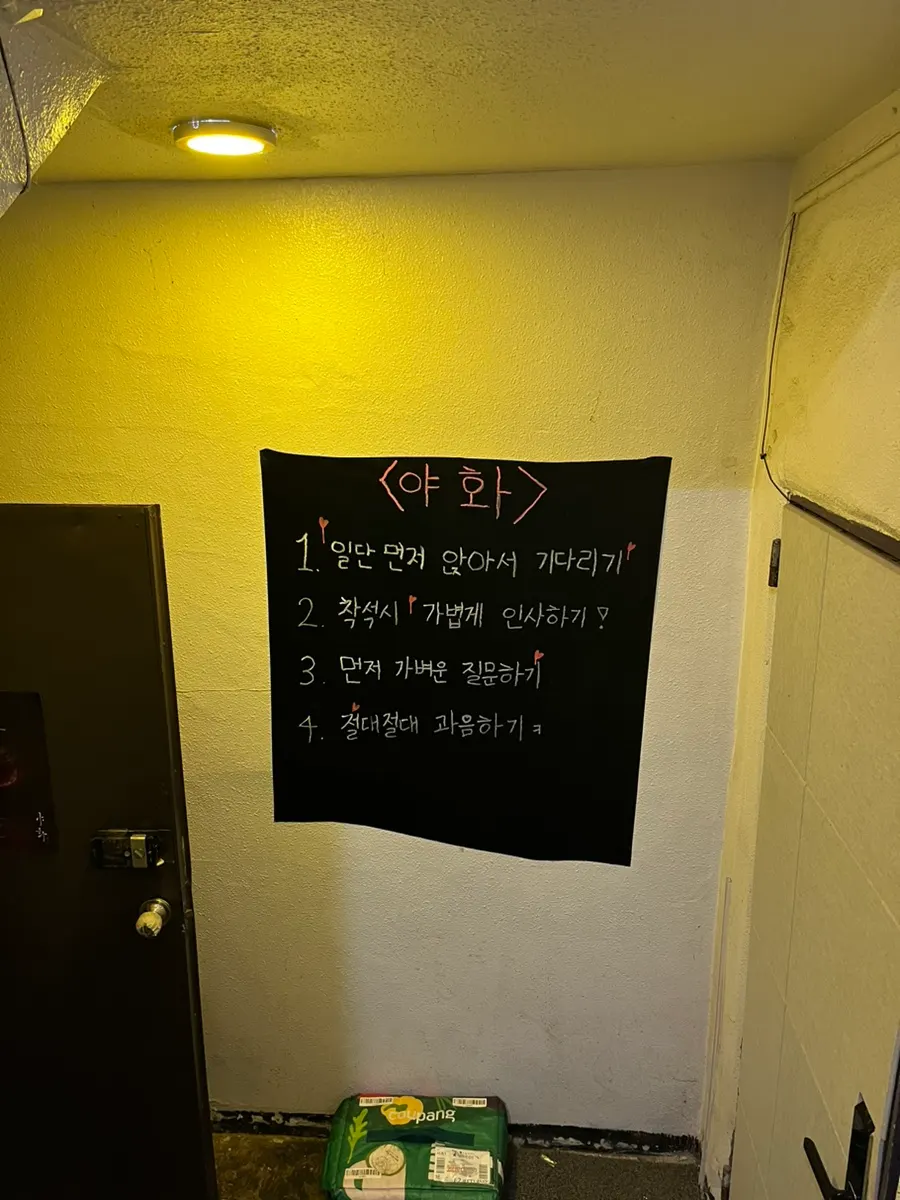 <야 화>
1. 일단 먼저 앉아서 기다리기
2. 착석시 가볍게 인사하기!
3. 먼저 가벼운 질문하기
4. 절대절대 과음하기ㅋ
야화
coupang